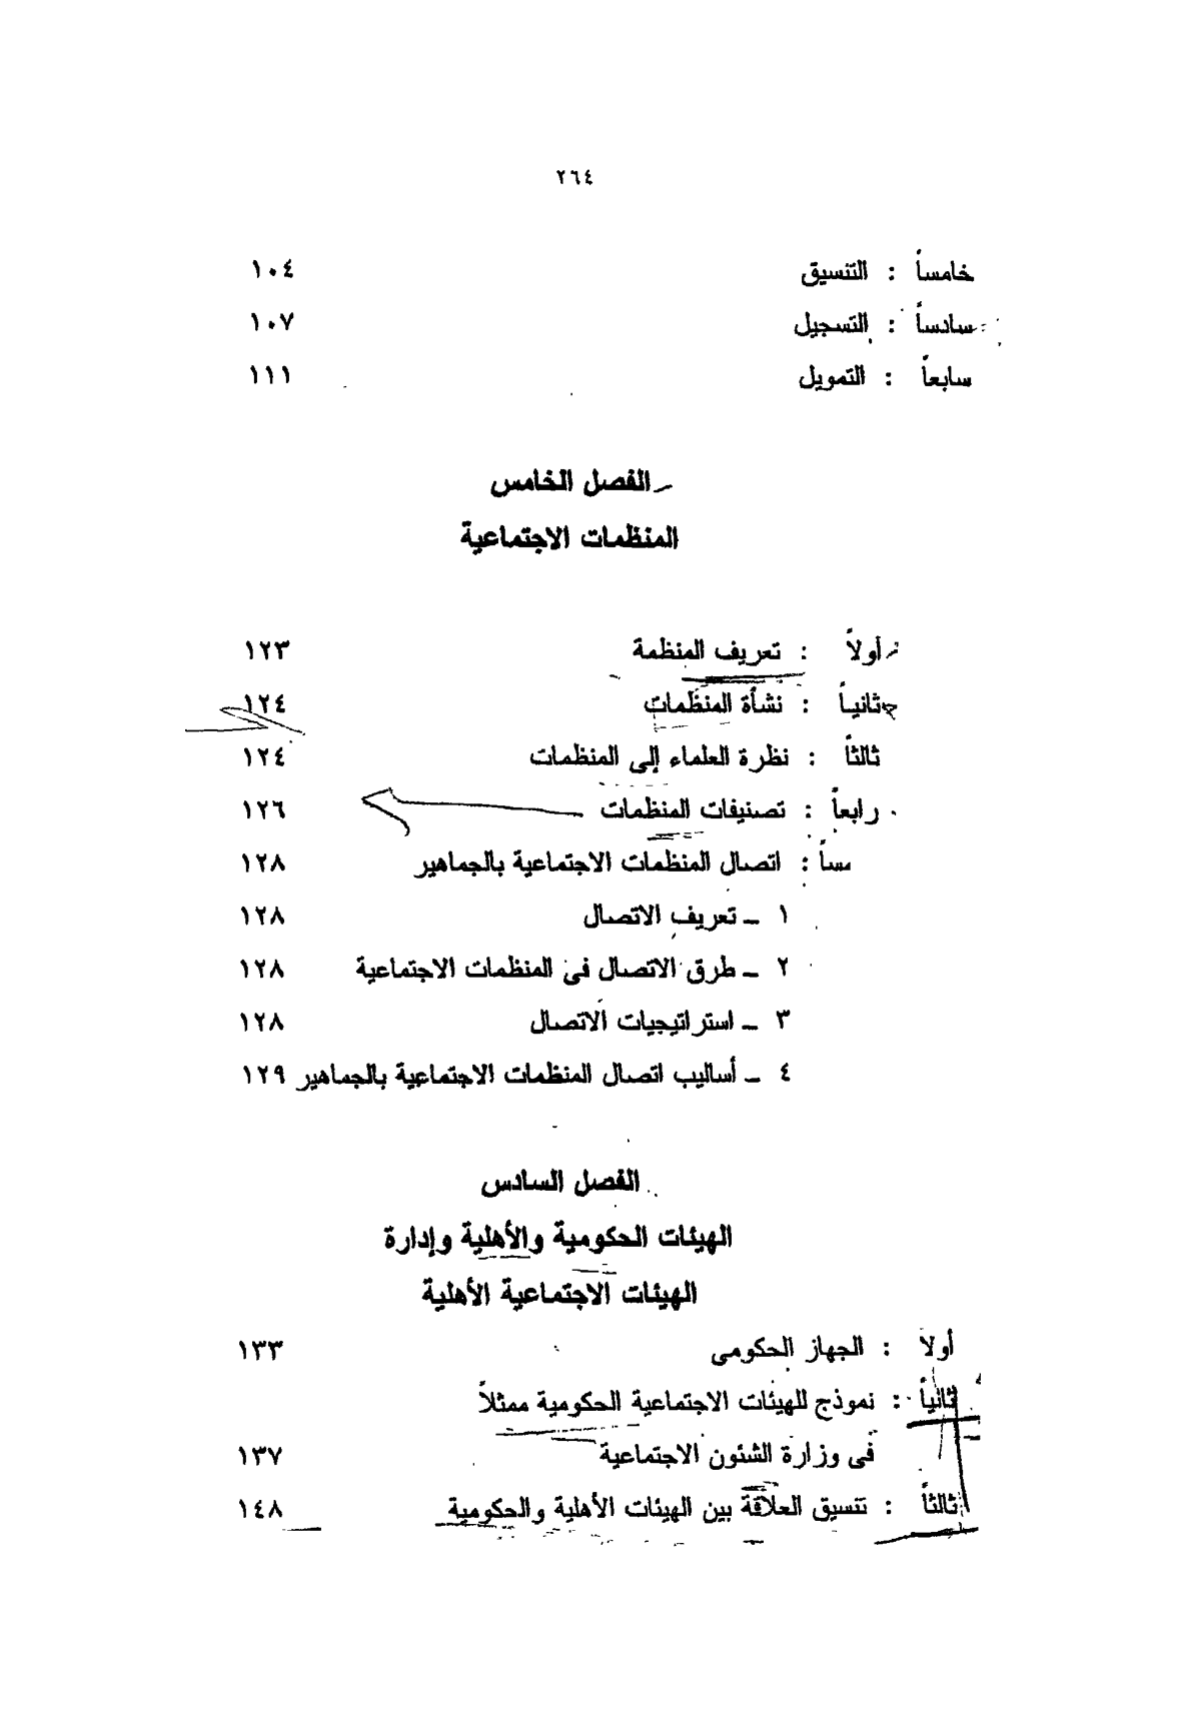 ٢٦٤
خامساً : التنسيق ١٠٤
سادساً : التسجيل ١٠٧
سابعاً : التمويل ١١١
الفصل الخامس
المنظمات الاجتماعية
أولاً : تعريف المنظمة ١٢٣
ثانياً : نشأة المنظمات ١٢٤
ثالثاً : نظرة العلماء إلى المنظمات ١٢٤
رابعاً : تصنيفات المنظمات ١٢٦
مساً : اتصال المنظمات الاجتماعية بالجماهير ١٢٨
١ ـ تعريف الاتصال ١٢٨
٢ ـ طرق الاتصال فى المنظمات الاجتماعية ١٢٨
٣ ـ استراتيجيات الاتصال ١٢٨
٤ ـ أساليب اتصال المنظمات الاجتماعية بالجماهير ١٢٩
الفصل السادس
الهيئات الحكومية والأهلية وإدارة
الهيئات الاجتماعية الأهلية
أولاً : الجهاز الحكومى ١٣٣
ثانياً : نموذج للهيئات الاجتماعية الحكومية ممثلاً
فى وزارة الشئون الاجتماعية ١٣٧
ثالثاً : تنسيق العلاقة بين الهيئات الأهلية والحكومية ١٤٨